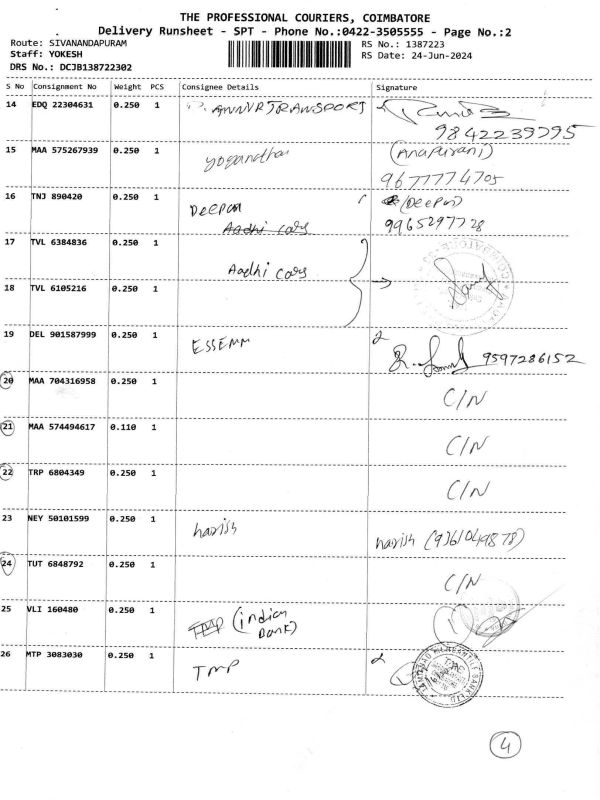 THE PROFESSIONAL COURIERS, COIMBATORE
Delivery Runsheet - SPT - Phone No.:0422-3505555 - Page No.:2
Route: SIVANANDAPURAM RS No.: 1387223
Staff: YOKESH RS Date: 24-Jun-2024
DRS No.: DCJB138722302
S No Consignment No Weight PCS Consignee Details Signature
14 EDQ 22304631 0.250 1 TRANSPORT
9842239795
15 MAA 575267939 0.250 1 (Anapurani)
9677774705
16 TNJ 890420 0.250 1 Deepan (Deepan)
Aadhi cars 9965297728
17 TVL 6384836 0.250 1 Aadhi cars
18 TVL 6105216 0.250 1
19 DEL 901587999 0.250 1 ESSEMM 2
9597286152
20 MAA 704316958 0.250 1 C/N
21 MAA 574494617 0.110 1 C/N
22 TRP 6804349 0.250 1 C/N
23 NEY 50101599 0.250 1 harish harish (9361049878)
24 TUT 6848792 0.250 1 C/N
25 VLI 160480 0.250 1 TMP (indian
Bank)
26 MTP 3083030 0.250 1 TMP 2
4